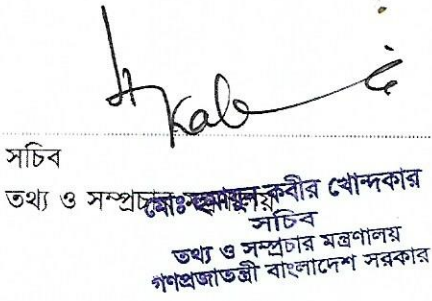 সচিব
তথ্য ও সম্প্রচার মন্ত্রণালয়
মোঃ হুমায়ুন কবীর খোন্দকার
সচিব
তথ্য ও সম্প্রচার মন্ত্রণালয়
গণপ্রজাতন্ত্রী বাংলাদেশ সরকার